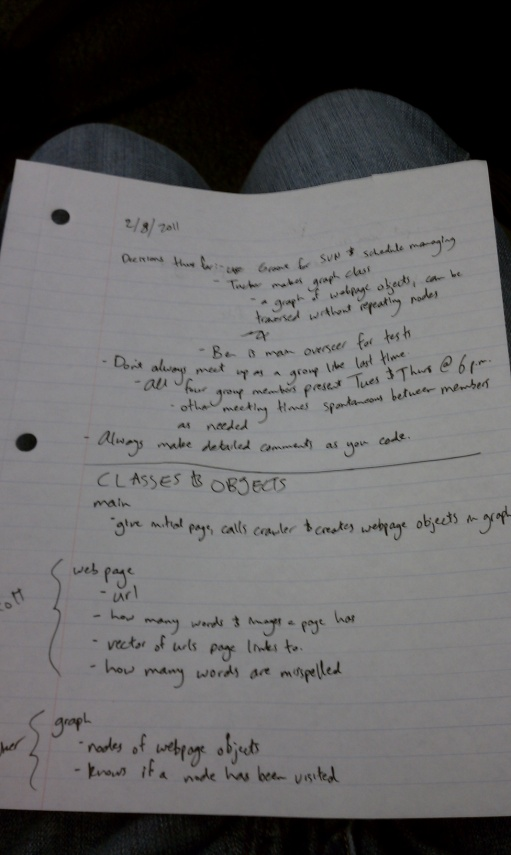 2/8/2011
Decisions thus far: - use Groove for SVN & schedule managing
- Tucker makes graph class
- a graph of webpage objects, can be
traversed without repeating nodes
- Ben is main overseer for tests
- Don't always meet up as a group like last time.
- All four group members present Tues & Thurs @ 6 p.m.
- other meeting times spontaneous between members
as needed
- Always make detailed comments as you code.
CLASSES & OBJECTS
main
- give initial page, calls crawler & creates webpage objects in graph
web page
- url
- how many words & images a page has
- vector of urls page links to.
- how many words are misspelled
graph
- nodes of webpage objects
- knows if a node has been visited